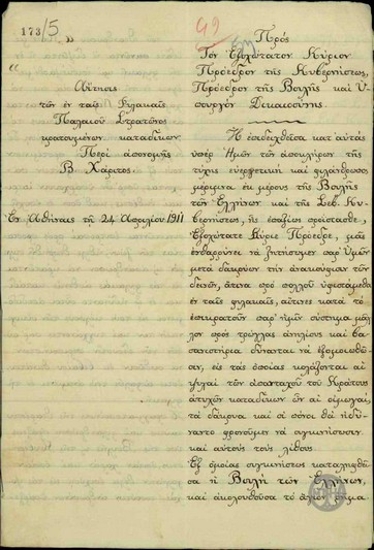 173/5
49
"
"
Αἴτησις
τῶν ἐν ταῖς Φυλακαῖς
Παλαιοῦ Στρατῶνος
κρατουμένων καταδίκων
Περὶ ἀπονομῆς
Β. Χάριτος.
Ἐν Ἀθήναις τῇ 24 Ἀπριλίου 1911
Πρὸς
Τὸν Ἐξοχώτατον Κύριον
Πρόεδρον τῆς Κυβερνήσεως,
Πρόεδρον τῆς Βουλῆς καὶ Ὑ-
πουργὸν Δικαιοσύνης
Ἡ ἐπιδειχθεῖσα κατ' αὐτὰς
ὑπὲρ Ἡμῶν τῶν ἀποκλήρων τῆς
τύχης εὐεργετικὴ καὶ φιλάνθρωπος
μέριμνα ἐκ μέρους τῆς Βουλῆς
τῶν Ἑλλήνων καὶ τῆς Σεβ. Κυ-
βερνήσεως, ἧς ἐπαξίως προΐστασθε,
Ἐξοχώτατε Κύριε Πρόεδρε, μᾶς
ἐνθαρρύνει νὰ ζητήσωμεν παρ' Ὑμῶν
μετὰ δακρύων τὴν ἀνακούφισιν τῶν
δεινῶν, ἅτινα πρὸ πολλοῦ ὑφιστάμεθα
ἐν ταῖς φυλακαῖς, αἵτινες κατὰ τὸ
ἐπικρατοῦν παρ' ἡμῖν σύστημα μᾶλ-
λον πρὸς τρώγλας ἀνηλίους καὶ βα-
σανιστήρια δύνανται νὰ ἐξομοιωθῶ-
σιν, εἰς τὰς ὁποίας κολάζονται αἱ
ψυχαὶ τῶν ἁπανταχοῦ τοῦ Κράτους
ἀτυχῶν καταδίκων ὧν αἱ οἰμωγαί,
τὰ δάκρυα καὶ οἱ πόνοι θὰ ἠδύ-
ναντο φρονοῦμεν νὰ συγκινήσωσιν
καὶ αὐτοὺς τοὺς λίθους
Ἐξ ὁμοίας συγκινήσεως καταληφθεῖ-
σα ἡ Βουλὴ τῶν Ἑλλήνων,
καὶ ἀκολουθοῦσα τὸ ἅγιον ρῆμα